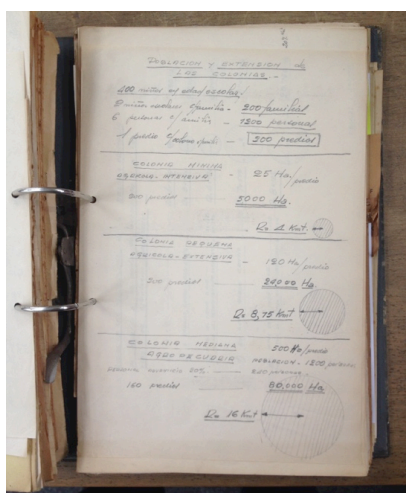 POBLACION Y EXTENSION de
LAS COLONIAS.-
400 niños en edad escolar/
2 niños escolares c/familia - 200 familias
6 personas c/familia - 1200 personas
1 predio - 200 predios
COLONIA MINIMA
AGRICOLA-INTENSIVA - 25 Ha/predio
200 predios 5000 Ha.
R= 4 Kmt.
COLONIA PEQUEÑA
AGRICOLA-EXTENSIVA - 120 Ha/predio
200 predios 24,000 Ha
R= 8,75 Kmt
COLONIA MEDIANA 500 Ha/predio
AGROPECUARIA POBLACION - 1200 personas
160 predios 80,000 Ha
R= 16 Kmt